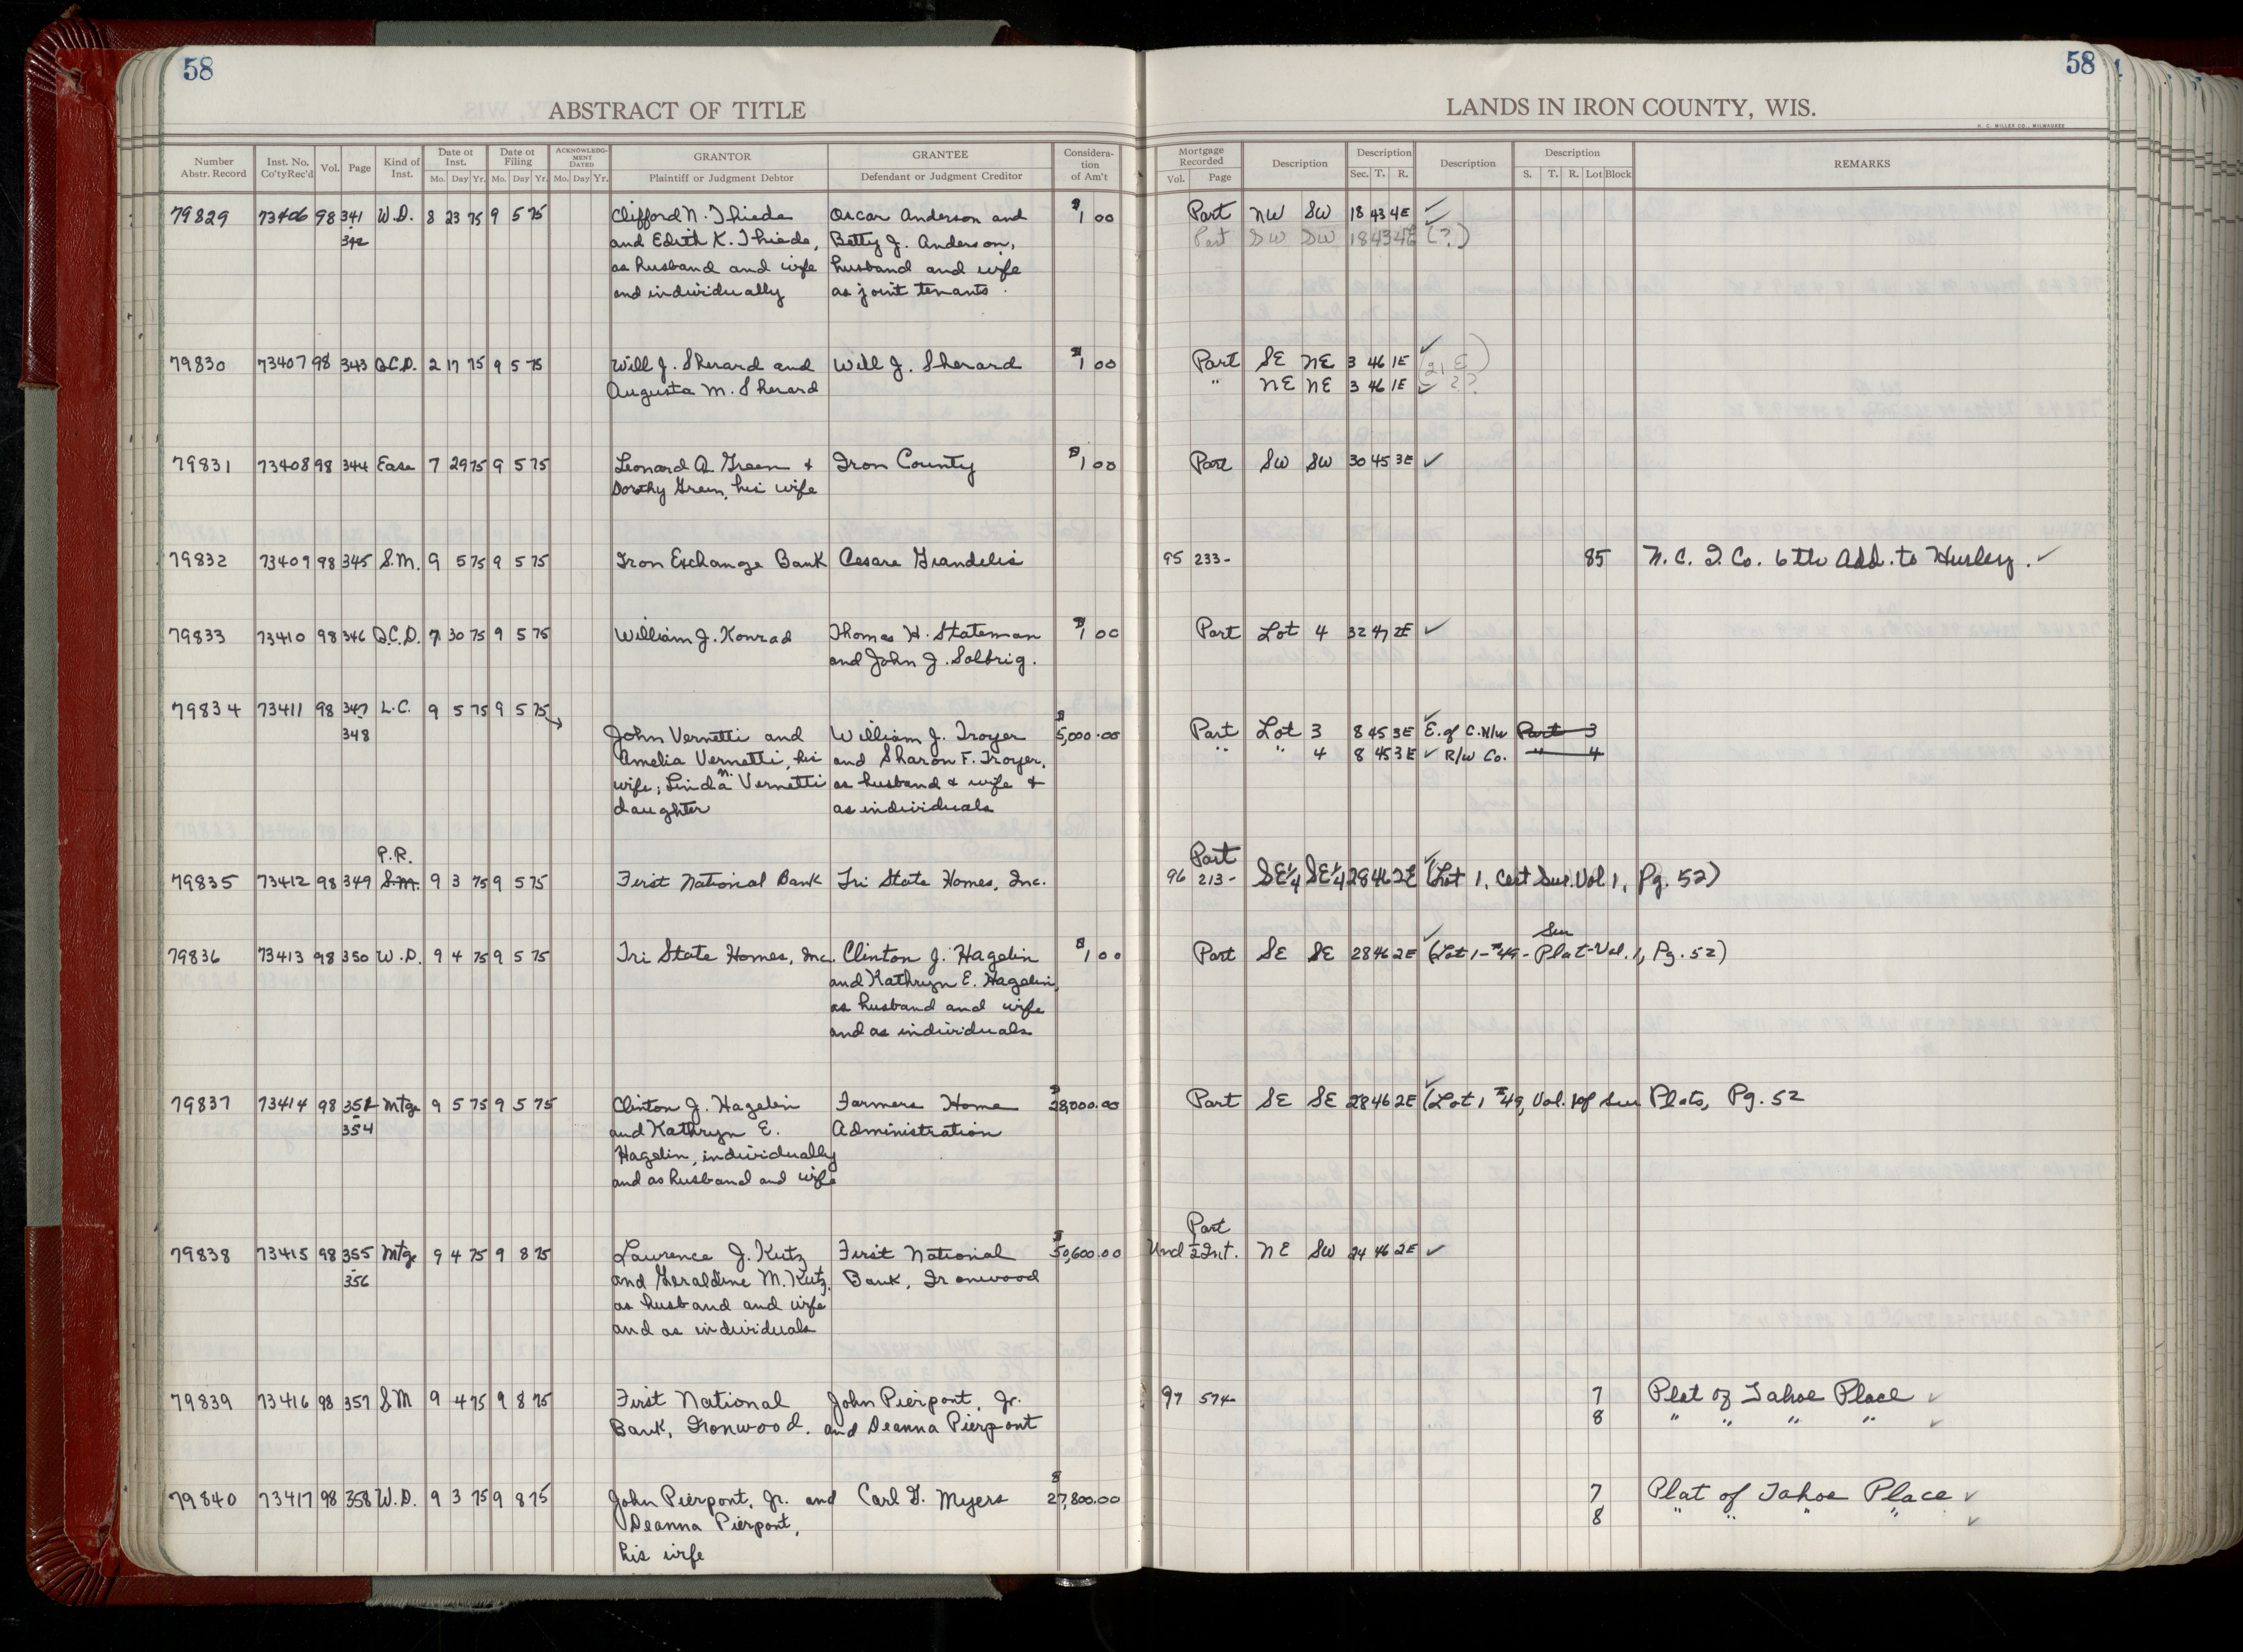 58
58
ABSTRACT OF TITLE
LANDS IN IRON COUNTY, WIS.
H. C. MILLER CO., MILWAUKEE
Number Abstr. Record Inst. No. Co'ty Rec'd Vol. Page Kind of Inst. Date of Inst. Mo. Day Yr. Date of Filing Mo. Day Yr. ACKNOWLEDGMENT DATED Mo. Day Yr. GRANTOR Plaintiff or Judgment Debtor GRANTEE Defendant or Judgment Creditor Consideration of Am't Mortgage Recorded Vol. Page Description Description Sec. T. R. Description Description S. T. R. Lot Block REMARKS
79829 73406 98 341 W.D. 8 23 75 9 5 75 Clifford N. Thiede Oscar Anderson and $1 00 Part NW SW 18 43 4E ✓
342 and Edith K. Thiede, Betty J. Anderson, Part SW SW 18 43 4E (?)
as husband and wife husband and wife
and individually as joint tenants.
79830 73407 98 343 Q.C.D. 2 17 75 9 5 75 Will J. Sherard and Will J. Sherard $1 00 Part SE NE 3 46 1E ✓ (21 E)
Augusta M. Sherard " NE NE 3 46 1E ✓ ??
79831 73408 98 344 Ease 7 29 75 9 5 75 Leonard A. Green + Iron County $1 00 Part SW SW 30 45 3E ✓
Dorothy Green, his wife
79832 73409 98 345 S.M. 9 5 75 9 5 75 Iron Exchange Bank Cesare Giandelis 95 233- 85 N. C. I. Co. 6th Add. to Hurley. ✓
79833 73410 98 346 Q.C.D. 7 30 75 9 5 75 William J. Konrad Thomas H. Stateman $1 00 Part Lot 4 32 47 2E ✓
and John J. Solbrig.
79834 73411 98 347 L.C. 9 5 75 9 5 75
348 John Vernetti and William J. Troyer $5,000.00 Part Lot 3 8 45 3E ✓ E. of C.N/W Part 3
Amelia Vernetti, his and Sharon F. Troyer, " " 4 8 45 3E ✓ R/W Co. " 4
wife; Linda M. Vernetti as husband & wife +
daughter as individuals
P.R. Part
79835 73412 98 349 S.M. 9 3 75 9 5 75 First National Bank Tri State Homes, Inc. 96 213- SE¼ SE¼ 28 46 2E ✓ (Lot 1, Cert Sur. Vol 1, Pg. 52)
Sur
79836 73413 98 350 W.D. 9 4 75 9 5 75 Tri State Homes, Inc. Clinton J. Hagelin $1 00 Part SE SE 28 46 2E ✓ (Lot 1-#49-Plat-Vol. 1, Pg. 52)
and Kathryn E. Hagelin,
as husband and wife
and as individuals
79837 73414 98 351 Mtge 9 5 75 9 5 75 Clinton J. Hagelin Farmers Home $28,000.00 Part SE SE 28 46 2E ✓ (Lot 1 #49, Vol. 1 of Sur Plats, Pg. 52
354 and Kathryn E. Administration
Hagelin, individually
and as husband and wife
Part
79838 73415 98 355 Mtge 9 4 75 9 8 75 Laurence J. Kutz First National $50,600.00 Und ½ Int. NE SW 24 46 2E ✓
356 and Geraldine M. Kutz, Bank, Ironwood
as husband and wife
and as individuals
79839 73416 98 357 S.M 9 4 75 9 8 75 First National John Pierpont, Jr. 97 574- 7 Plat of Tahoe Place ✓
Bank, Ironwood. and Deanna Pierpont 8 " " " " ✓
79840 73417 98 358 W.D. 9 3 75 9 8 75 John Pierpont, Jr. and Carl G. Myers $27,800.00 7 Plat of Tahoe Place ✓
Deanna Pierpont, 8 " " " " ✓
his wife